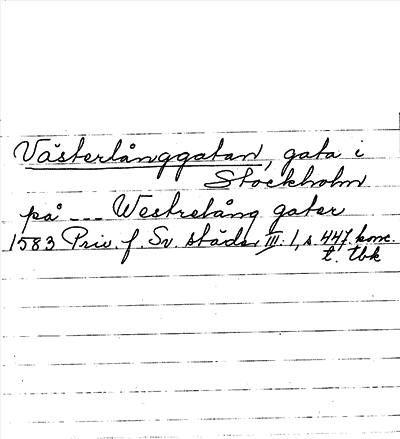 Västerlånggatan, gata i
Stockholm
på --- Westrelång gater
1583 Priv. f. Sv. städer III:1, s. 447. konc.
t. tbk